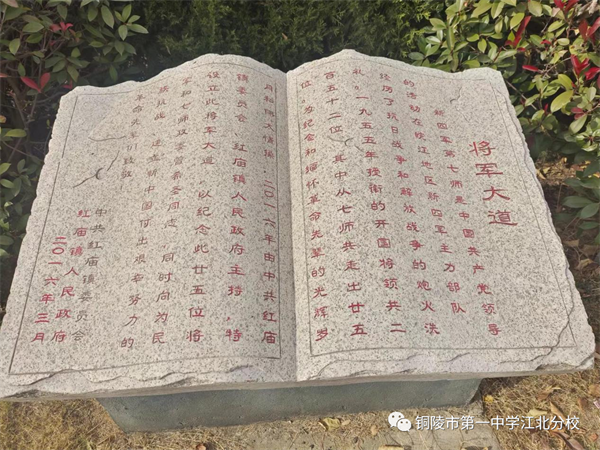 将军大道
新四军第七师是中国共产党领导
的活动在皖江地区新四军主力部队
经历了抗日战争和解放战争的炮火洗
礼。一九五五年授衔的开国将领共二
百五十二位，其中从七师共走出廿五
位。为纪念和缅怀革命先辈的光辉岁
月和伟大情操，二〇一六年由中共红庙
镇委员会、红庙镇人民政府主持，特
设立此将军大道，以纪念此廿五位将
军和七师政委曾希圣同志，同时向为民
族抗战、新中国付出艰辛努力的
革命先辈们致敬！
中共红庙镇委员会
红庙镇人民政府
二〇一六年三月
铜陵市第一中学江北分校